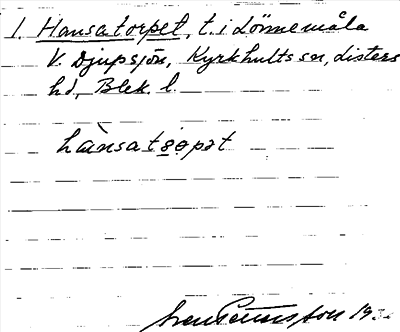 1. Hansatorpet, t. i Lönnemåla
V. Djupsjön, Kyrkhults sn, Listers
hd, Blek. l.
hànsatǫpət
Sven Benson 19